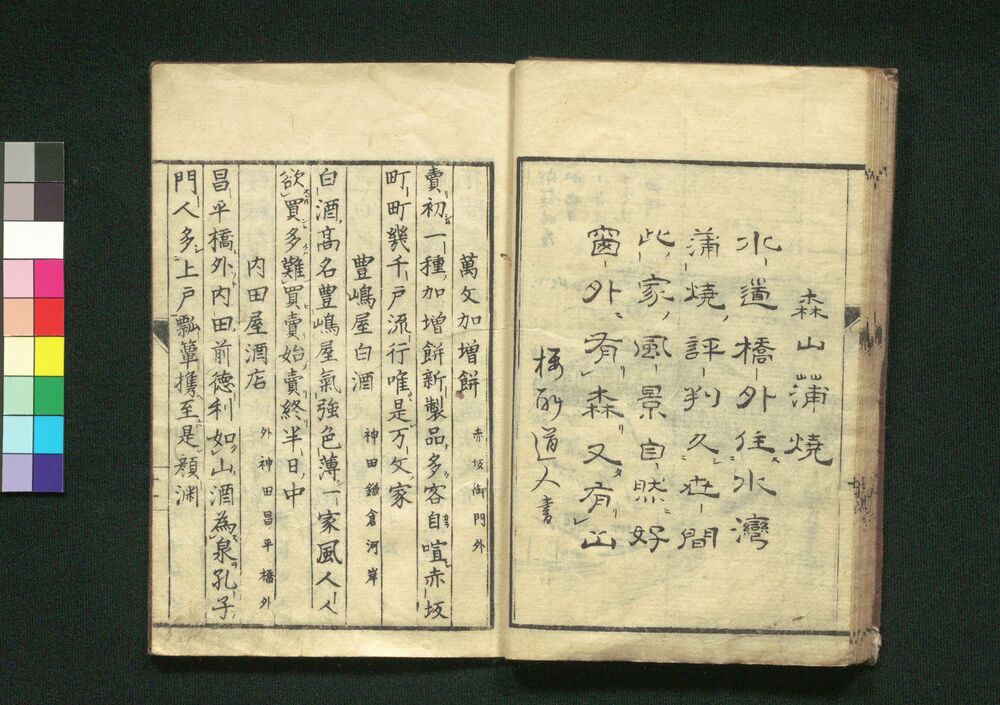 森山蒲焼
水道橋外住水灣
蒲焼評判久世間
此家風景自然好
窗外有森又有山
道人書
萬文加增餅 赤坂御門外
賣初一種加增餅新製品多客自喧赤坂
町町幾千戸流行唯是万文家
豊嶋屋白酒 神田鎌倉河岸
白酒高名豊嶋屋氣強色薄一家風人人
欲買多難買賣始賣終半日中
内田屋酒店 外神田昌平橋外
昌平橋外内田前德利如山酒為泉孔子
門人多上戸瓢簞携至是顔淵